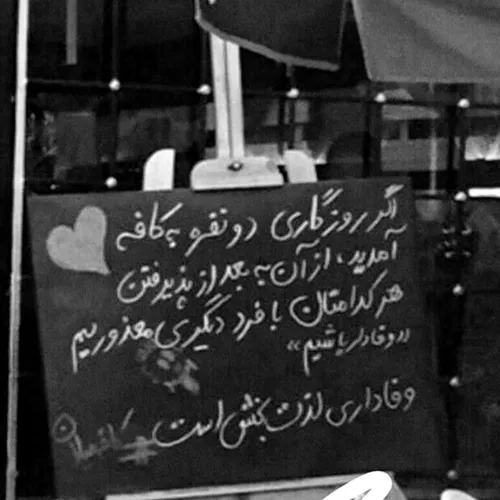 اگر روزگاری دو نفره به کافه
آمدید، از آن به بعد از پذیرفتن
هر کدامتان با فرد دیگری معذوریم
«وفادار باشیم»
وفاداری لذت بخش است